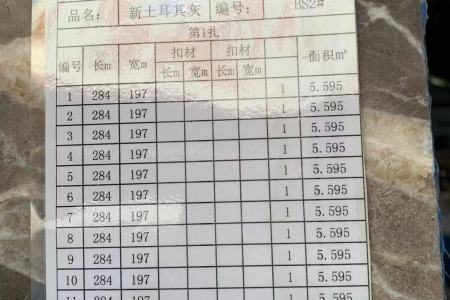 品名: 新土耳其灰 编号: BS2#
第1扎
编号 长m 宽m 扣材 扣材 面积m²
长m 宽m 长m 宽m
1 284 197 1 5.595
2 284 197 1 5.595
3 284 197 1 5.595
4 284 197 1 5.595
5 284 197 1 5.595
6 284 197 1 5.595
7 284 197 1 5.595
8 284 197 1 5.595
9 284 197 1 5.595
10 284 197 1 5.595
11 284 197 1 5.595